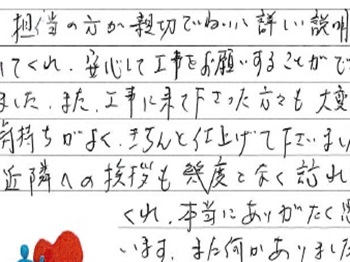 担当の方が親切でねいに詳しい説明
してくれ、安心して工事をお願いすることがで
ました。また、工事に来て下さった方々も大変
気持ちがよく、きちんと仕上げて下さいまし
近隣への挨拶も幾度となく訪れ
くれ、本当にありがたく思
います。また何かありました